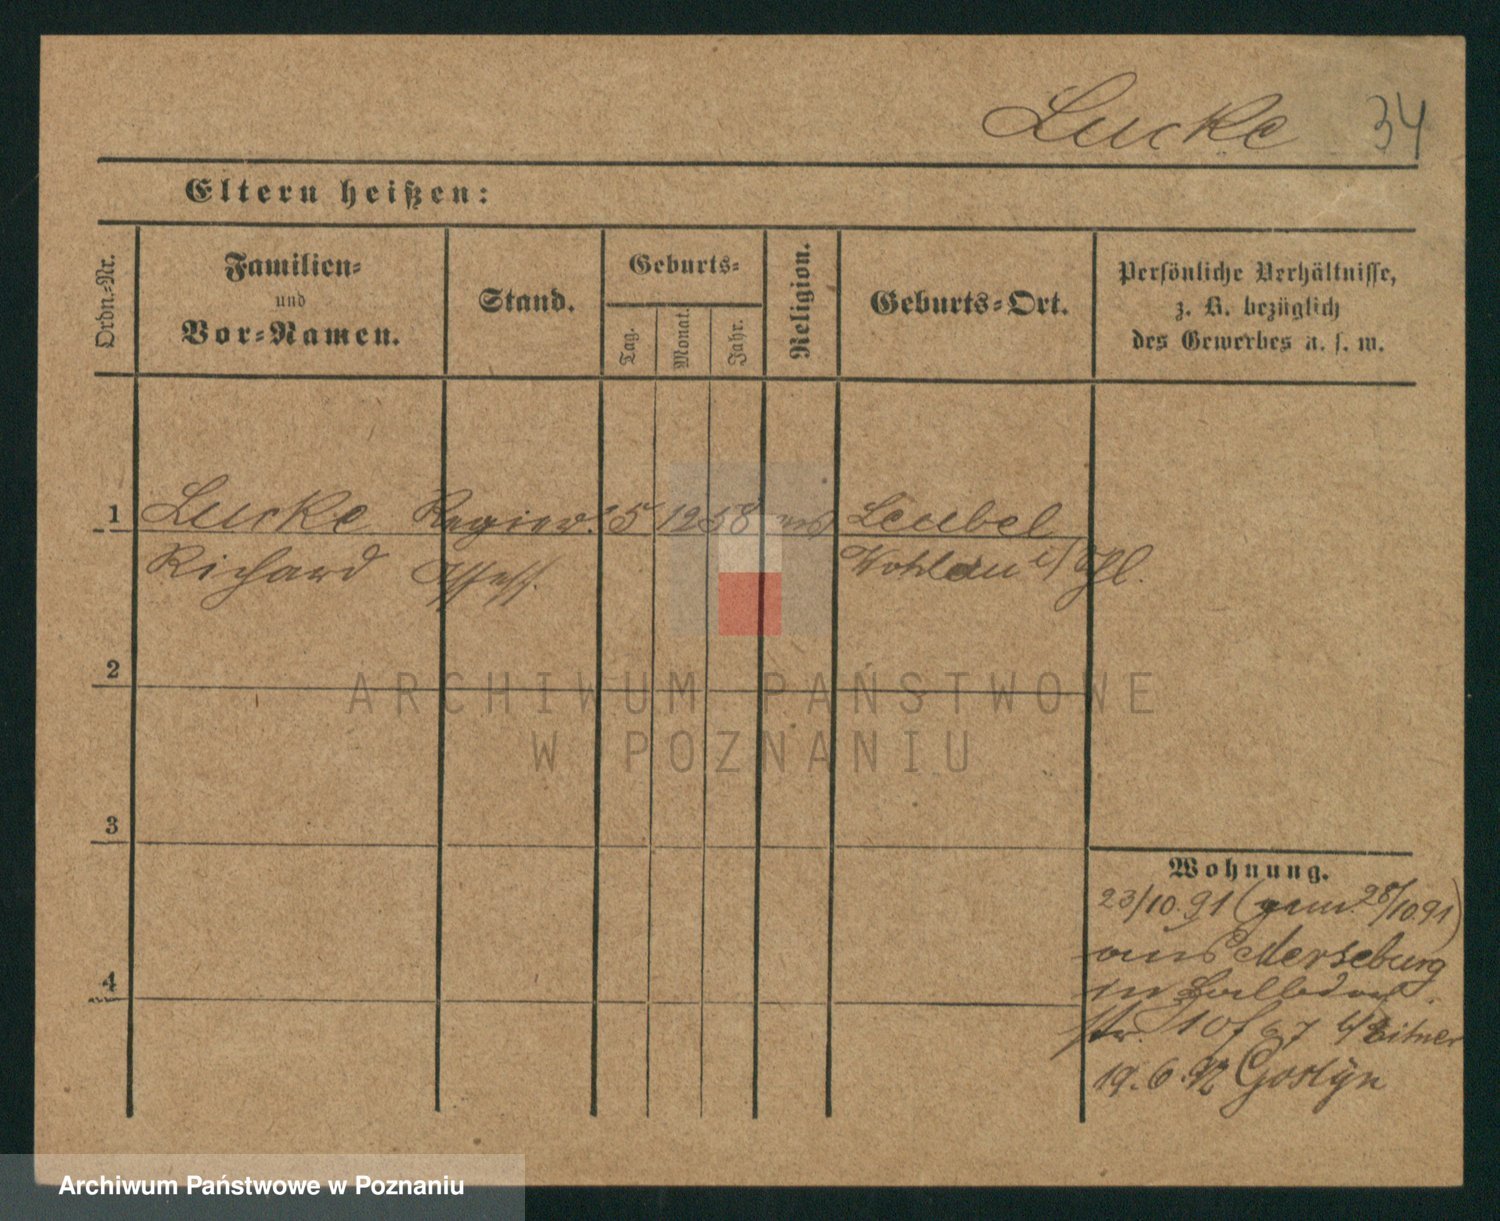 Lucke 34
Eltern heißen:
Ordn.-Nr.
Familien-
und
Vor-Namen.
Stand.
Geburts-
Tag.
Monat.
Jahr.
Religion.
Geburts-Ort.
Persönliche Verhältnisse,
z. B. bezüglich
des Gewerbes u. s. w.
1 Lucke Regier. 5 12 58 Leubel
Richard Assess. Wohlau i/ Schl.
2
3
4
Wohnung.
23/10.91 (gem. 28/10.91)
aus Merseburg
in
str. 10 b/ Zeitner
19.6.92 Gostÿn
ARCHIWUM PAŃSTWOWE
W POZNANIU
Archiwum Państwowe w Poznaniu